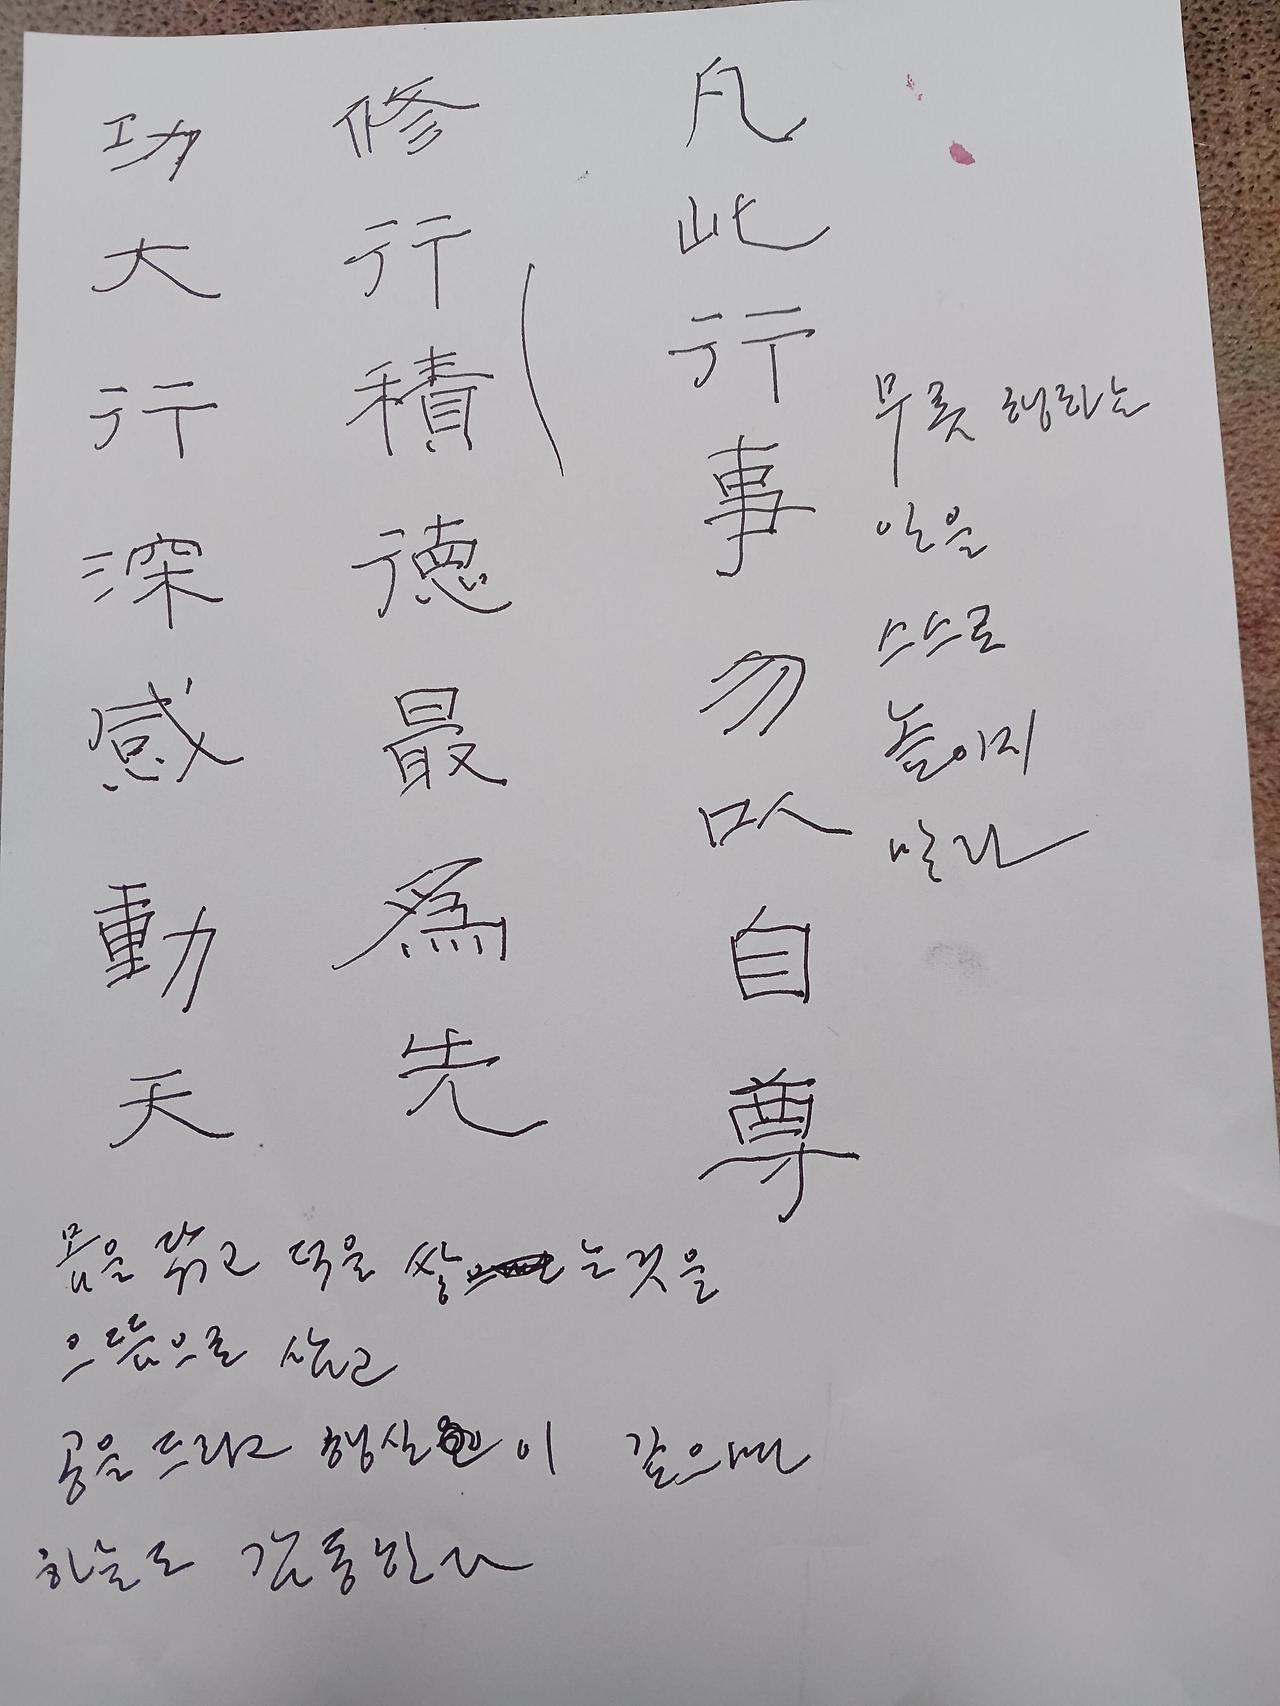 凡此行事勿以自尊
무릇 행하는
일을
스스로
높이지
말라
修行積德最爲先
功大行深感動天
몸을 닦고 덕을 쌓는것을
으뜸으로 삼고
공을 드리고 행실이 깊으면
하늘도 감동한다